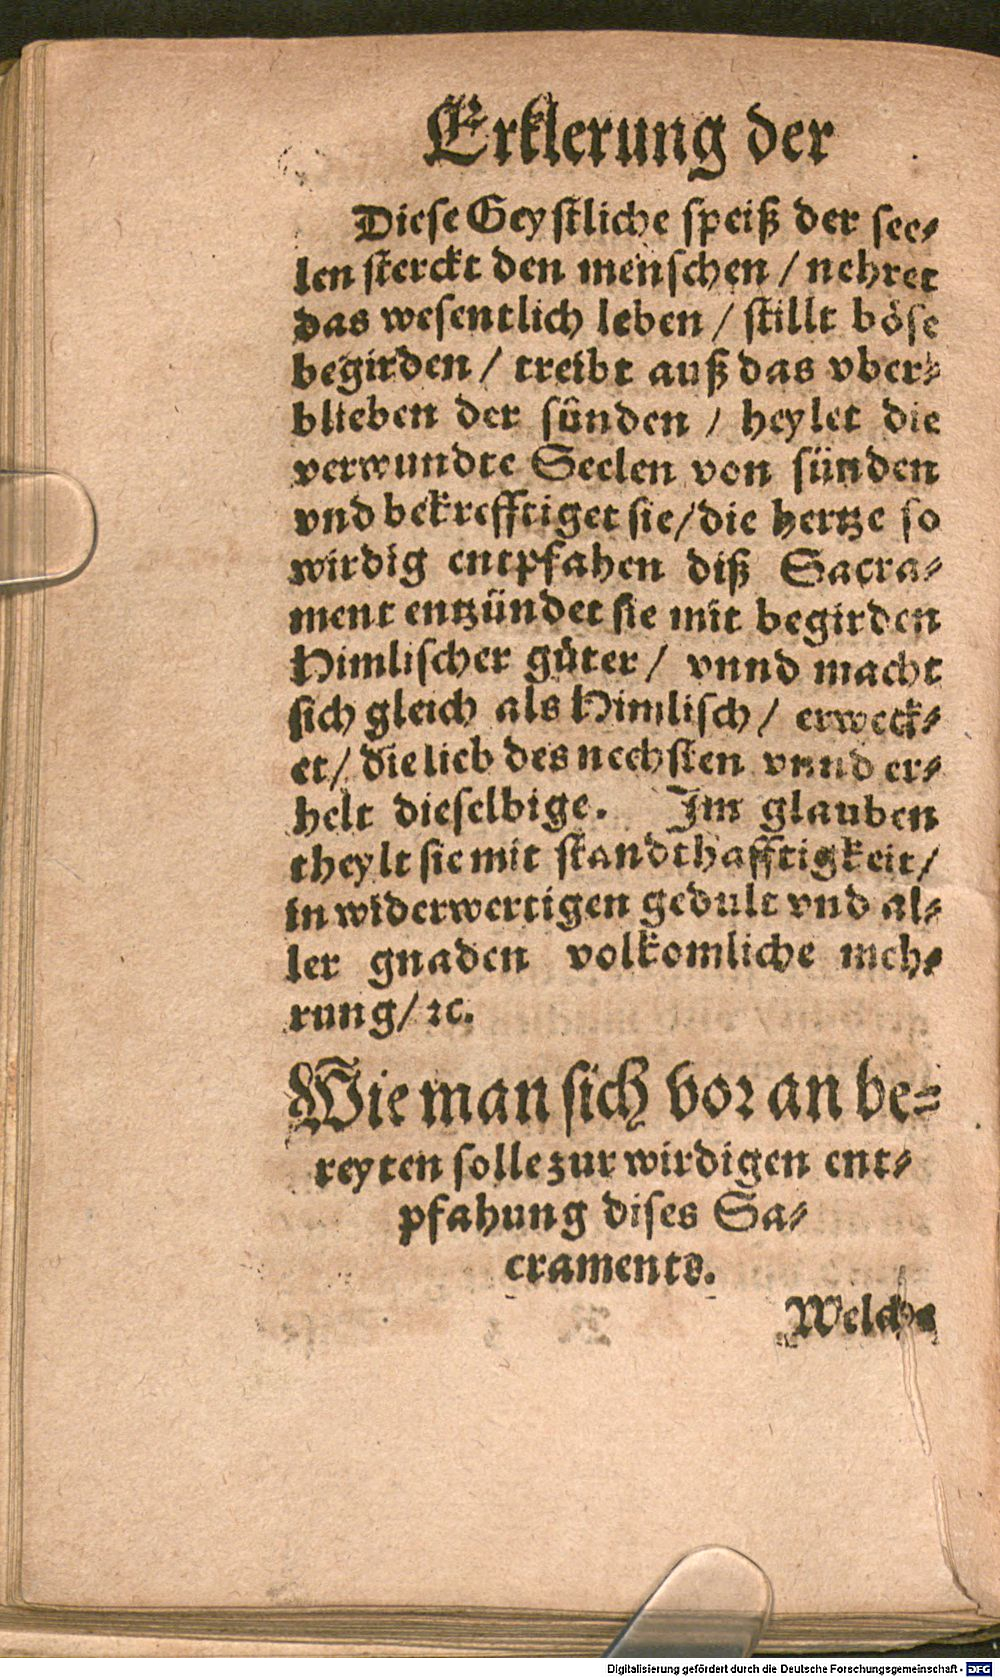 Erklerung der
Diese Geystliche speiß der see-
len sterckt den menschen / nehret
das wesentlich leben / stillt böse
begirden / treibt auß das vber-
blieben der sünden / heylet die
verwundte Seelen von sünden
vnd bekrefftiget sie / die hertze so
wirdig entpfahen diß Sacra-
ment entzündet sie mit begirden
Himlischer güter / vnnd macht
sich gleich als Himlisch / erweck-
et / die lieb des nechsten vnnd er-
helt dieselbige. Im glauben
theylt sie mit standthafftigkeit /
in widerwertigen gedult vnd al-
ler gnaden volkomliche meh-
rung / ꝛc.
Wie man sich vor an be-
reyten solle zur wirdigen ent-
pfahung dises Sa-
craments.
Welchs
Digitalisierung gefördert durch die Deutsche Forschungsgemeinschaft - DFG